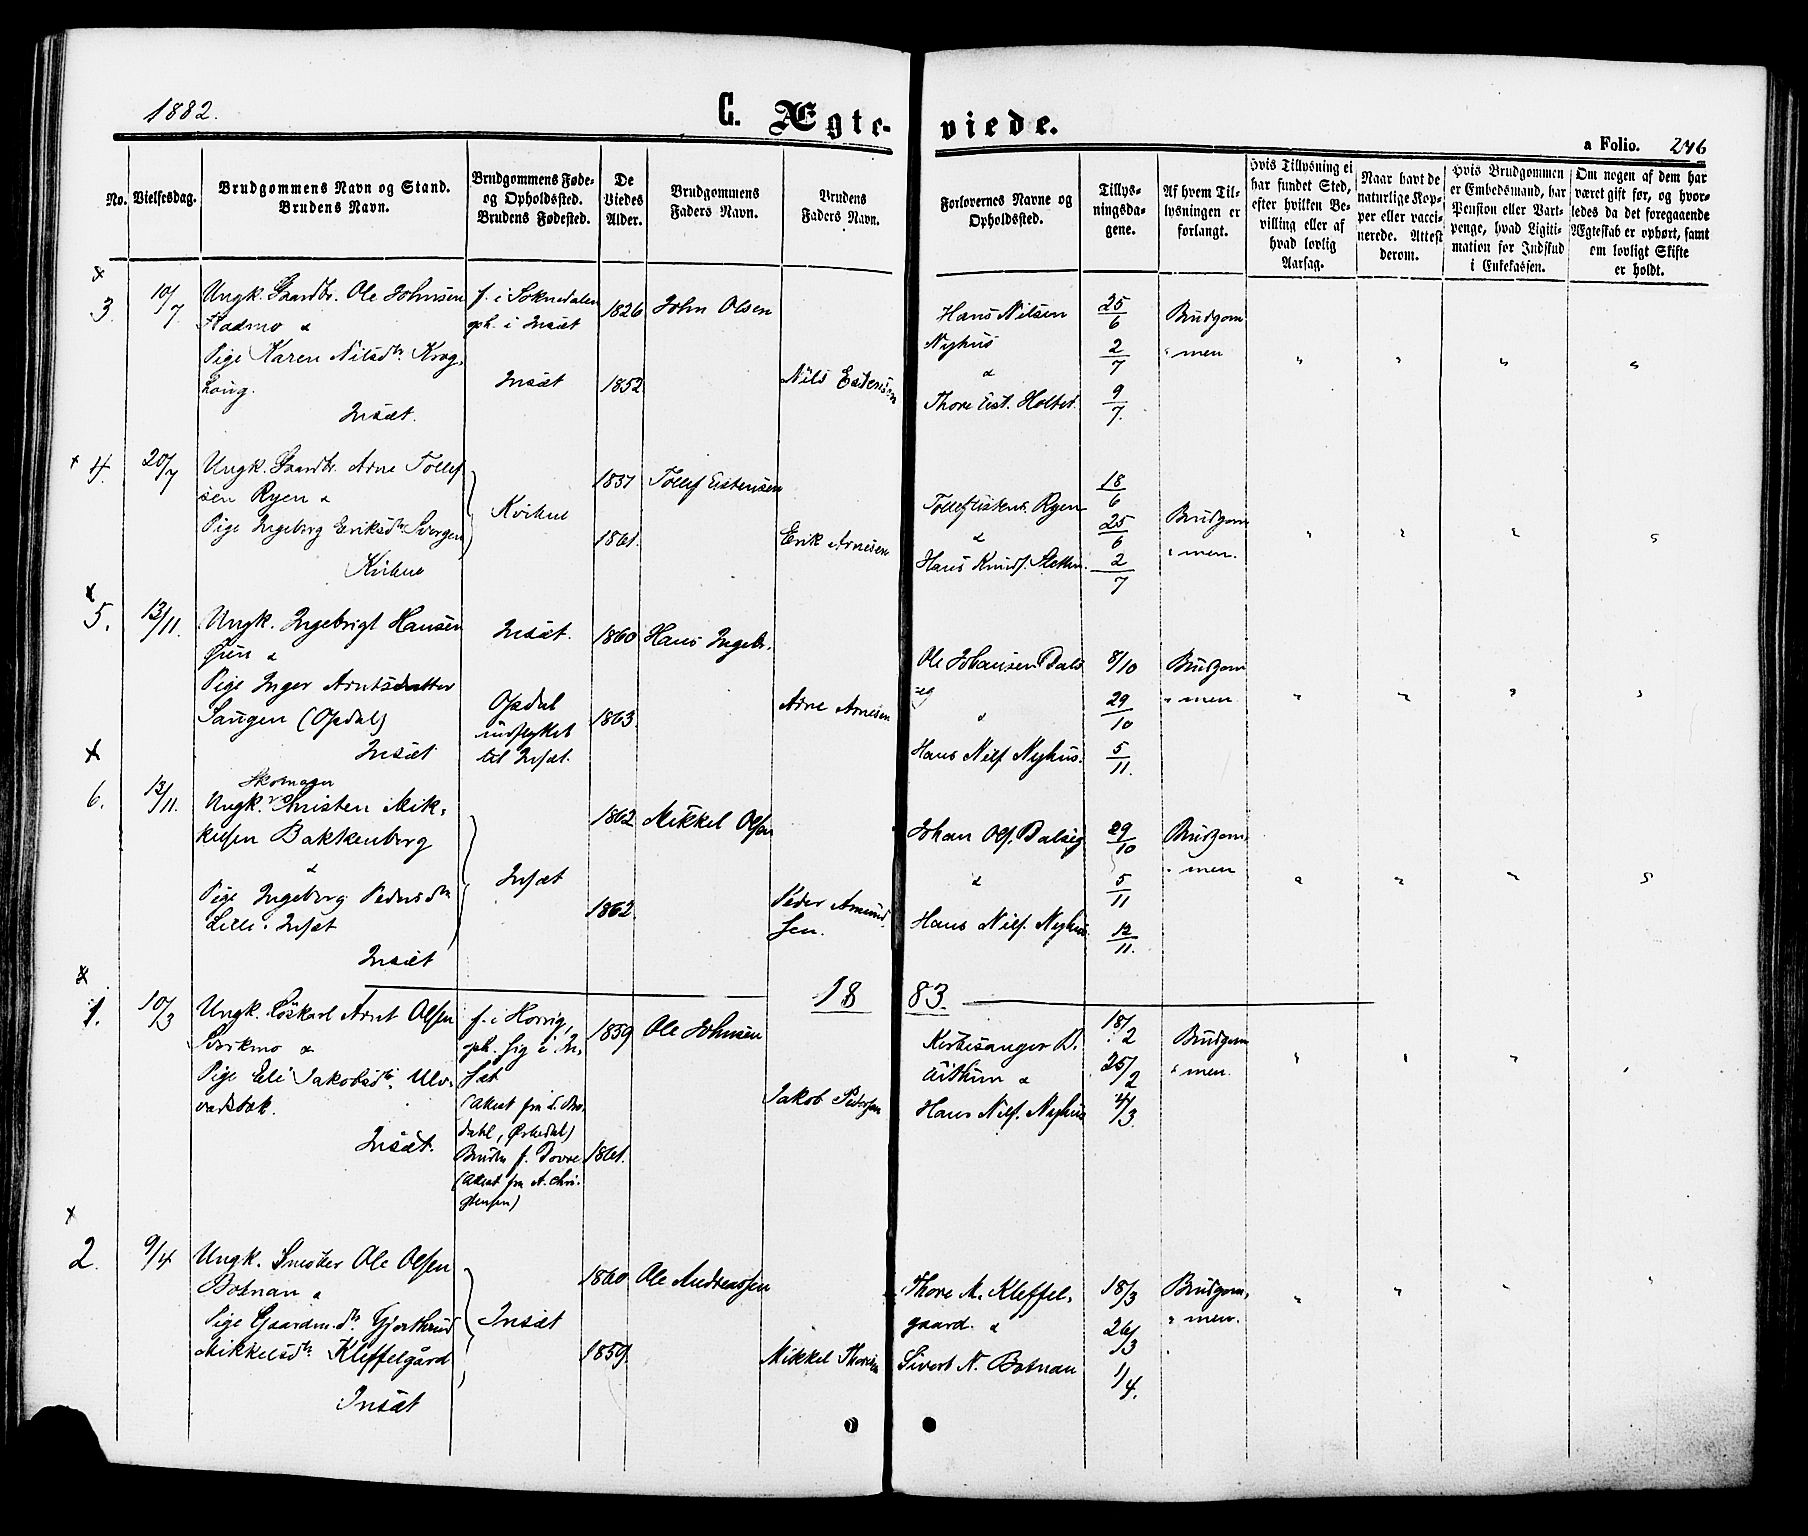 1882.
C. Ægte-
viede.
a Folio. 246
No.
Vielsesdag.
Brudgommens Navn og Stand.
Brudens Navn.
Brudgommens Føde-
og Opholdssted.
Brudens Fødested.
De
Viedes
Alder.
Brudgommens
Faders Navn.
Brudens
Faders Navn.
Forlovernes Navne og
Opholdssted.
Tillys-
ningsda-
gene.
Af hvem Til-
lysningen er
forlangt.
Hvis Tillysning ei
har fundet Sted,
efter hvilken Be-
villing eller af
hvad lovlig
Aarsag.
Naar havt de
naturlige Kop-
per eller vacci-
nerede. Attest
derom.
Hvis Brudgommen
er Embedsmand, har
Pension eller Vart-
penge, hvad Ligiti-
mation for Indskud
i Enkekassen.
Om nogen af dem har
været gift før, og hvor-
ledes da det foregaaende
Ægteskab er ophørt, samt
om lovligt Skifte
er holdt.
3.
10/7
Ungk. Gaardbr. Ole Johnsen
Fladmo &
Pige Karen Nilsdtr. Krog-
haug.
Insæt.
f. i Soknedalen
oph. i Insæt
Insæt
1826
1852
John Olsen
Nils Estensen
Hans Nilsen
Nyhus
&
Thore Est. Holtet.
25/6
2/7
9/7.
Brudgom
" men
4.
20/7
Ungk. Gaardbr. Arne Tollef
sen Ryen &
Pige Ingeborg Eriksdtr.
Kvikne
Kvikne
1837
1861.
Tollef Estensen
Erik Arnesen
Tollef Estens. Ryen
&
Hans Knuds.
18/6
25/6
2/7
Brudgom
" men.
5.
13/11.
Ungk. Ingebrigt Hansen
Øien &
Pige Inger Arntsdatter
Haugen (Opdal)
Insæt
Insæt.
Opdal
indflyttet
til Insæt.
1860
1863.
Hans Ingebr.
Arne Arnesen
Ole Johansen Dals
eg
&
Hans Nils. Nyhus.
8/10
29/10
5/11.
Brudgom
" men
6.
13/11.
Skomager
Ungk. Christen Mik-
kelsen Bakkenberg
&
Pige Ingeborg Pedersdtr
Lille-Insæt
Insæt
Insæt
1862
1862.
Mikkel Olsen
Peder Amund
sen.
Johan Ols. Dalseg
&
Hans Nils. Nyhus.
29/10
5/11
12/11.
Brudgom
" men
1883.
1.
10/3
Ungk. Løskarl Arnt Olsen
&
Pige Eli Jakobsdtr.
Insæt.
f. i Horrig,
oph. sig i In-
sæt
(Attest fra
dahl,
Bruden f. Dovre
(Attest fra A. Chri-
stensen)
1859
1861.
Ole Johnsen
Jakob Pedersen
Kirkesanger D.
&
Hans Nils. Nyhus
18/2
25/2
4/3.
Brudgom
" men.
2.
9/4
Ungk. Snedker Ole Olsen
Botnan &
Pige Gaardm.dtr. Gjertrud
Mikkelsdtr. Kleffelgård
Insæt
Insæt
1860
1859.
Ole Andreassen
Mikkel Thoresen
Thore M. Kleffel-
gaard. &
Sivert N. Botnan
18/3
26/3
1/4.
Brudgom-
" men.